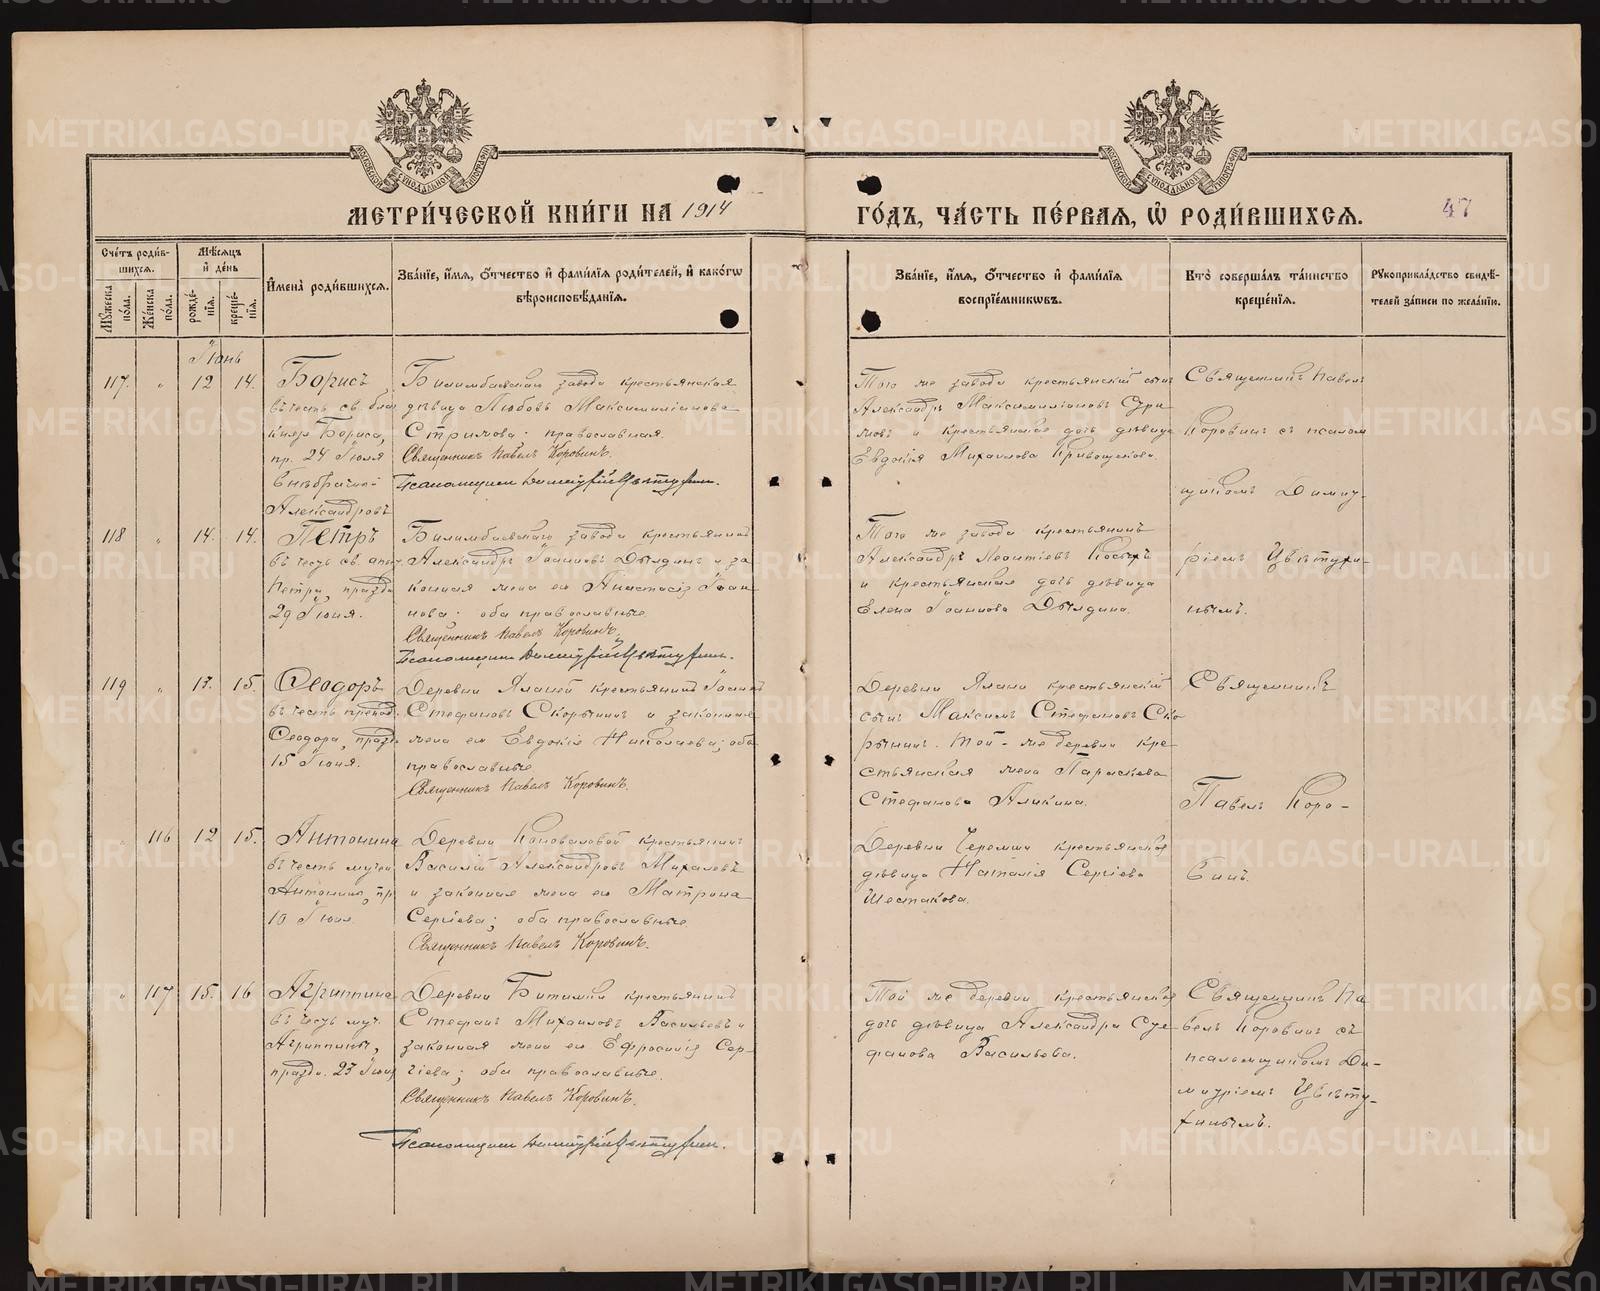 МЕТРИ́ЧЕСКОЙ КНИ́ГИ НА 1914
ГО́ДЪ, ЧА́СТЬ ПЕ́РВАЯ, Ѿ РОДИ́ВШИХСЯ.
47
Сче́тъ роди́в-
шихся.
Мѣ́сяцъ
и҆ де́нь
Мꙋ́жеска по́ла.
Же́нска по́ла.
рожде́-
нїя.
креще́-
нїя.
И҆мена̀ роди́вшихся.
Зва́нїе, и҆́мя, ѻ҆́тчество и҆ фами́лїя роди́телей, и҆ какогѡ
вѣроисповѣ́данїя.
Зва́нїе, и҆́мя, ѻ҆́тчество и҆ фами́лїя
воспрїе́мникѡвъ.
Кто̀ соверша́лъ та́инство
креще́нїя.
Рꙋкоприкла́дство свидѣ́-
телей за́писи по жела́нїю.
Іюнь
117. " 12 14.
Борисъ
въ честь св. благ
князя Бориса,
пр. 24 Іюля
Внѣбрачный
Александровъ
Билимбаевскаго завода крестьянская
дѣвица Любовь Максимилианова
православная.
Священникъ Павелъ Коровинъ.
Псаломщикъ Димитрій Цвѣтухинъ.
Того же завода крестьянскій сынъ
Александръ Максимилиановъ
и крестьянская дочь дѣвица
Евдокія Михаилова Кривощекова.
Священникъ Павелъ
Коровинъ съ псалом
щикомъ Димит-
ріемъ Цвѣтухи-
нымъ.
118 " 14. 14.
Петръ
въ честь св. апос
Петра, праздн
29 Іюня.
Билимбаевскаго завода крестьянинъ
Александръ Іоанновъ Дылдинъ и за
конная жена его Анастасія Іоан
нова; оба православные.
Священникъ Павелъ Коровинъ.
Псаломщикъ Димитрій Цвѣтухинъ.
Того же завода крестьянинъ
Александръ Леонтіевъ Косыхъ
и крестьянская дочь дѣвица
Елена Іоаннова Дылдина.
119 " 13. 15.
Ѳеодоръ
въ честь препод.
Ѳеодора, празд.
15 Іюня.
Деревни крестьянинъ Іоаннъ
Стефановъ Скорынинъ и законная
жена его Евдокія Николаева; оба
православные
Священникъ Павелъ Коровинъ.
Деревни крестьянскій
сынъ Максимъ Стефановъ Ско
рынинъ. Той-же деревни кре
стьянская жена Параскева
Стефанова Аликина.
Священникъ
Павелъ Коро-
винъ.
" 116 12 15.
Антонина
въ честь мучен
Антонины, пр
10 Іюня
Деревни Коноваловой крестьянинъ
Василій Александровъ Михалевъ
и законная жена его Матрона
Сергіева; оба православные.
Священникъ Павелъ Коровинъ.
Деревни Черемши крестьянская
дѣвица Наталія Сергіева
Шестакова.
" 117 15. 16
Агриппина
въ честь муч.
Агриппины,
празд. 23 Іюня
Деревни Битимки крестьянинъ
Стефанъ Михаиловъ Васильевъ и
законная жена его Ефросинія Сер-
гіева; оба православные.
Священникъ Павелъ Коровинъ.
Псаломщикъ Димитрій Цвѣтухинъ.
Той же деревни крестьянская
дочь дѣвица Александра Сте
фанова Васильева.
Священникъ Па
велъ Коровинъ съ
псаломщикомъ Ди-
митріемъ Цвѣту-
хинымъ.
METRIKI.GASO-URAL.RU